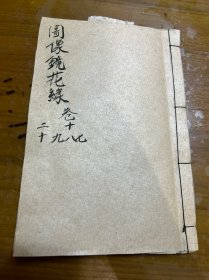 圖像鏡花緣
卷十七
十八
十九
二十